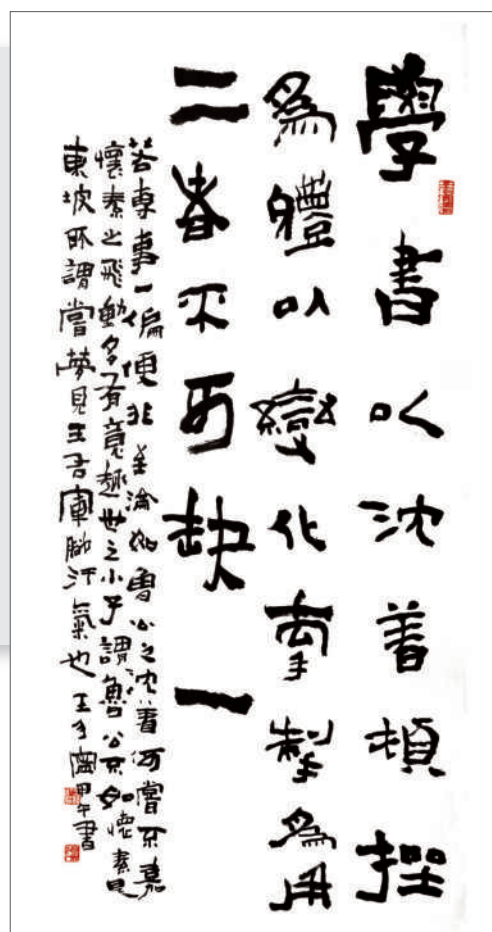 學書以沈著頓挫
爲體以變化牽掣爲用
二者不可缺一
若專事一偏便非至論如魯公之沈着何嘗不嘉
懷素之飛動多有意趣世之小子謂魯公不如懷素是
東坡所謂嘗夢見王右軍脚汗氣也 王 甲午書